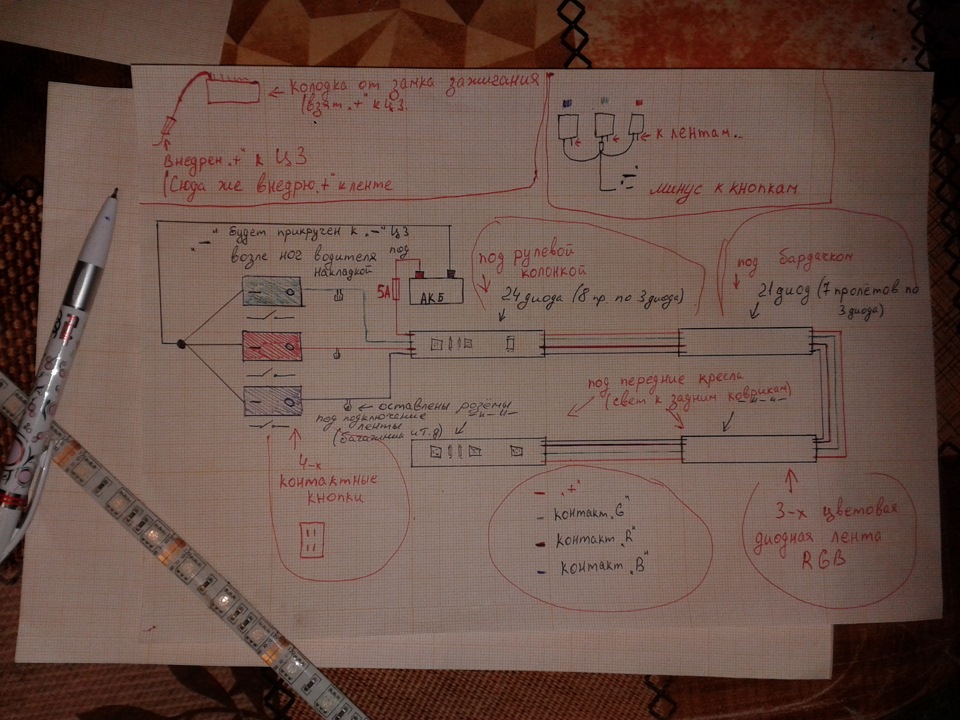 ← колодка от замка зажигания
(взят „+" к ЦЗ.
Внедрен „+" к ЦЗ
(Сюда же внедрю „+" к ленте
← к лентам..
„–"
минус к кнопкам
„–" будет прикручен к „–" ЦЗ
возле ног водителя
под
накладкой
5А
АКБ
под рулевой
колонкой
24 диода (8 пр. по 3 диода)
под бардачком
21 диод (7 пролётов по
3 диода)
под передние кресла
(свет к задним коврикам)
–"–"–
← оставлены розёмы
под подключение
ленты
(багажник и т.д)
–"–"–
4-х
контактные
кнопки
– „+"
– контакт „G"
– контакт „R"
– контакт „B"
3-х цветовая
диодная лента
RGB